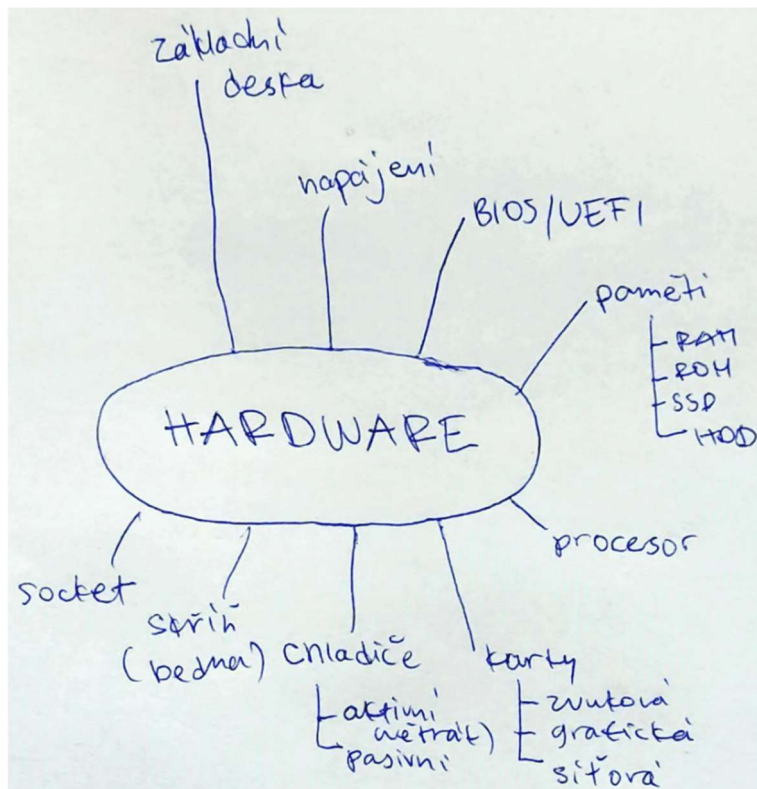 základní
deska
napájení
BIOS/UEFI
paměti
RAM
ROM
SSD
HDD
HARDWARE
procesor
socket
skříň
(bedna)
chladiče
aktivní
(větrák)
pasivní
karty
zvuková
grafická
síťová